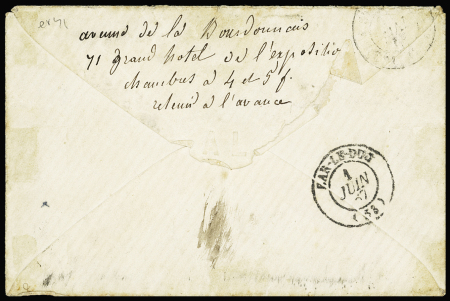 ex 71
avenue de la Bourdonnais
71 grand hotel de l'expositio
chambres à 4 et 5 f.
retenir à l'avance
BAR-LE-DUC
1
JUIN
67
(53)